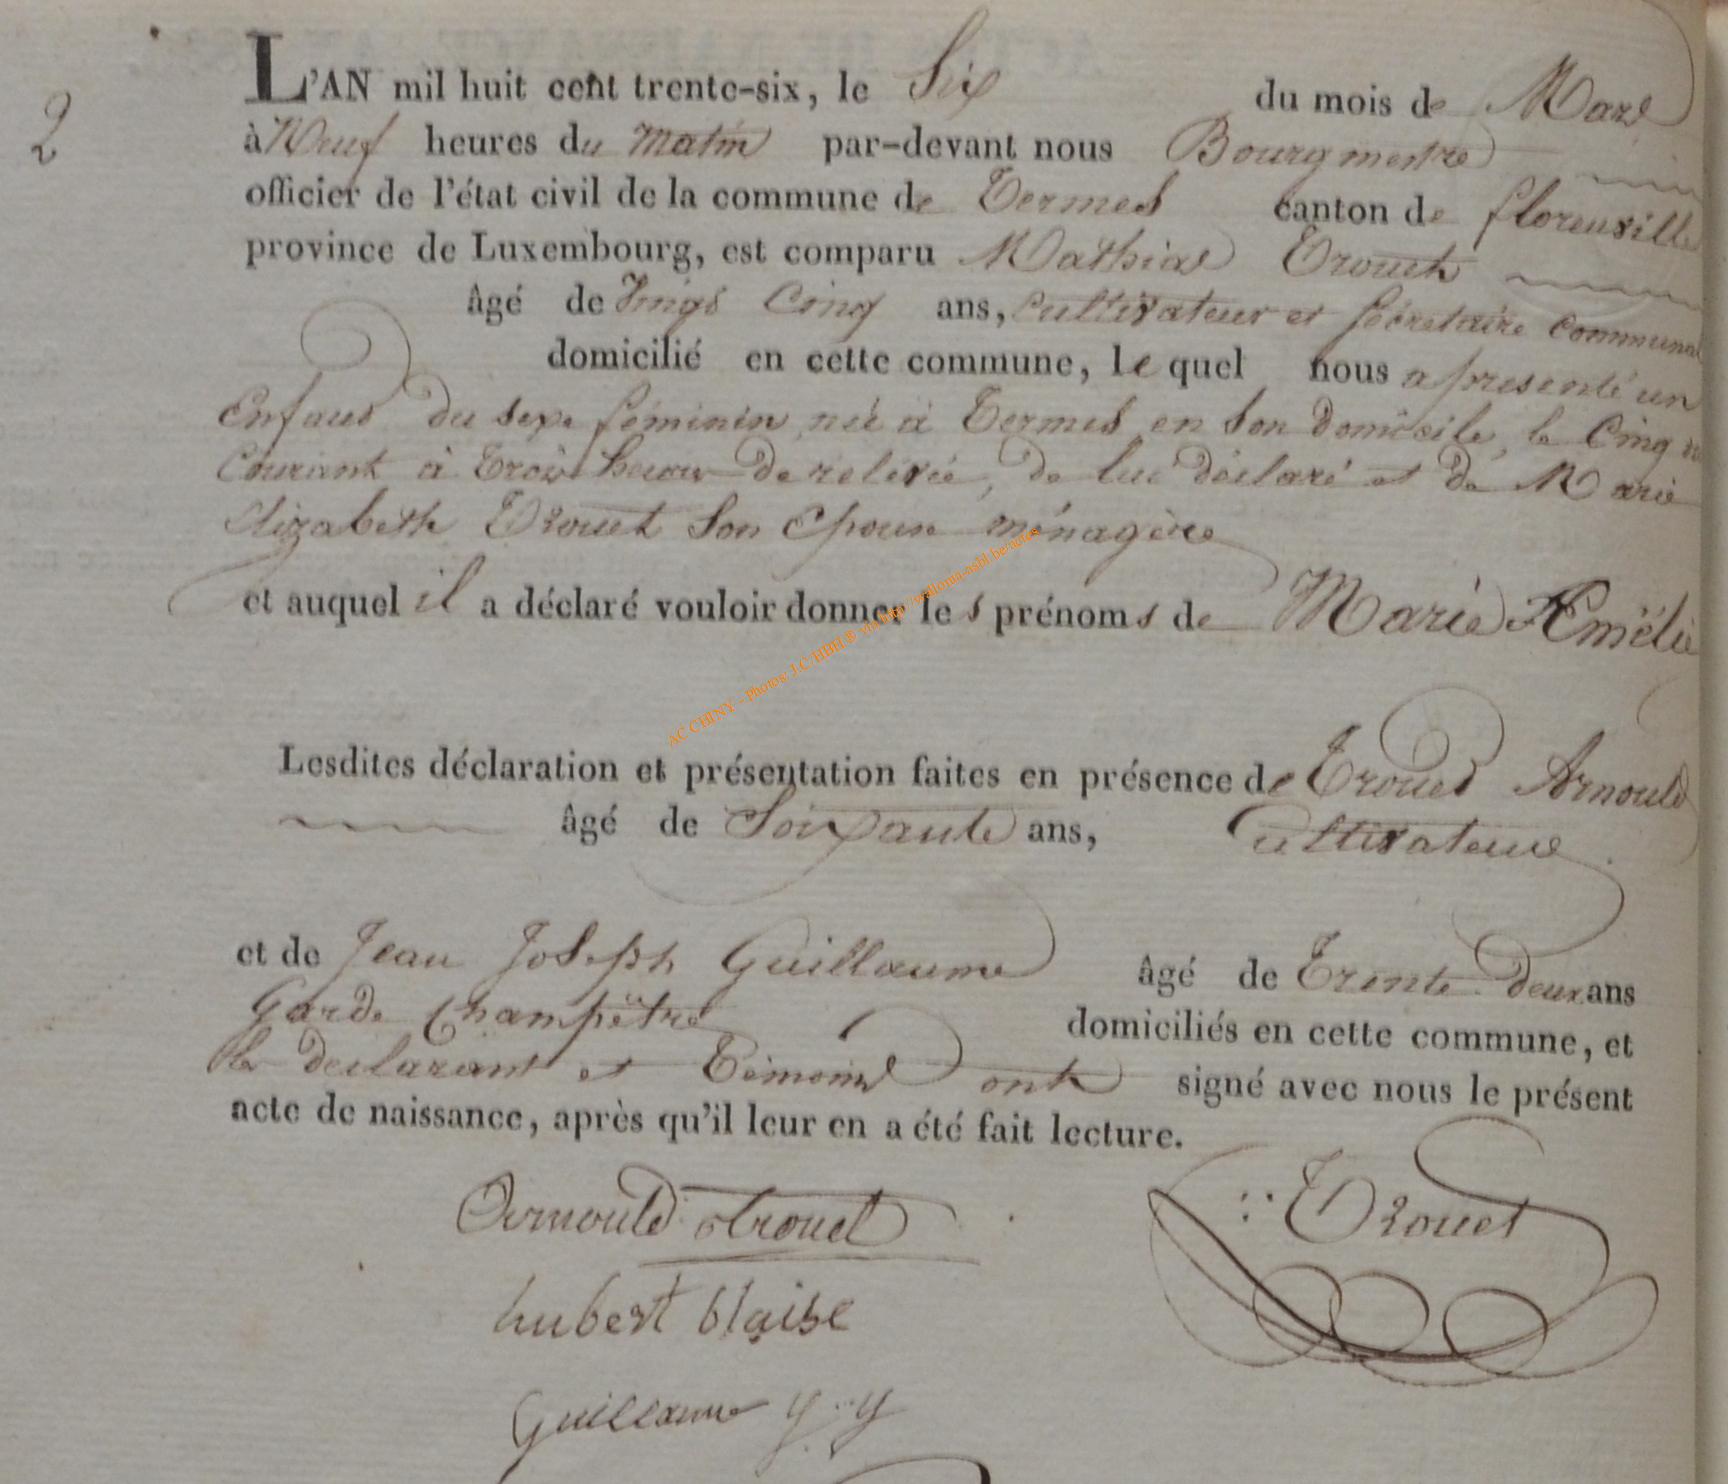 2
L'AN mil huit cent trente-six, le Six du mois de Mars
à Neuf heures du matin par-devant nous Bourgmestre
officier de l'état civil de la commune de Termes canton de florenville
province de Luxembourg, est comparu Mathias Trouet
âgé de Vingt Cinq ans, cultivateur et Sécretaire Communal
domicilié en cette commune, le quel nous a presenté un
Enfant du sexe féminin née à Termes en Son domicile, le Cinq du
Courant à trois heures de relevée, de lui déclaré et de Marie
Elizabeth Trouet Son Epouse ménagère
et auquel il a déclaré vouloir donner le s prénoms de Marie Amélie
Lesdites déclaration et présentation faites en présence de Trouet Arnould
âgé de Soixante ans, Cultivateur
et de Jean Joseph Guillaume âgé de Trente deux ans
Garde Champêtre domiciliés en cette commune, et
le declarant et Témoins ont signé avec nous le présent
acte de naissance, après qu'il leur en a été fait lecture.
Arnould trouet Trouet
hubert blaise
Guillaume y..y
AC CHINY - Photos: J.C HBrl ® via http://wallonia-asbl.be/actes